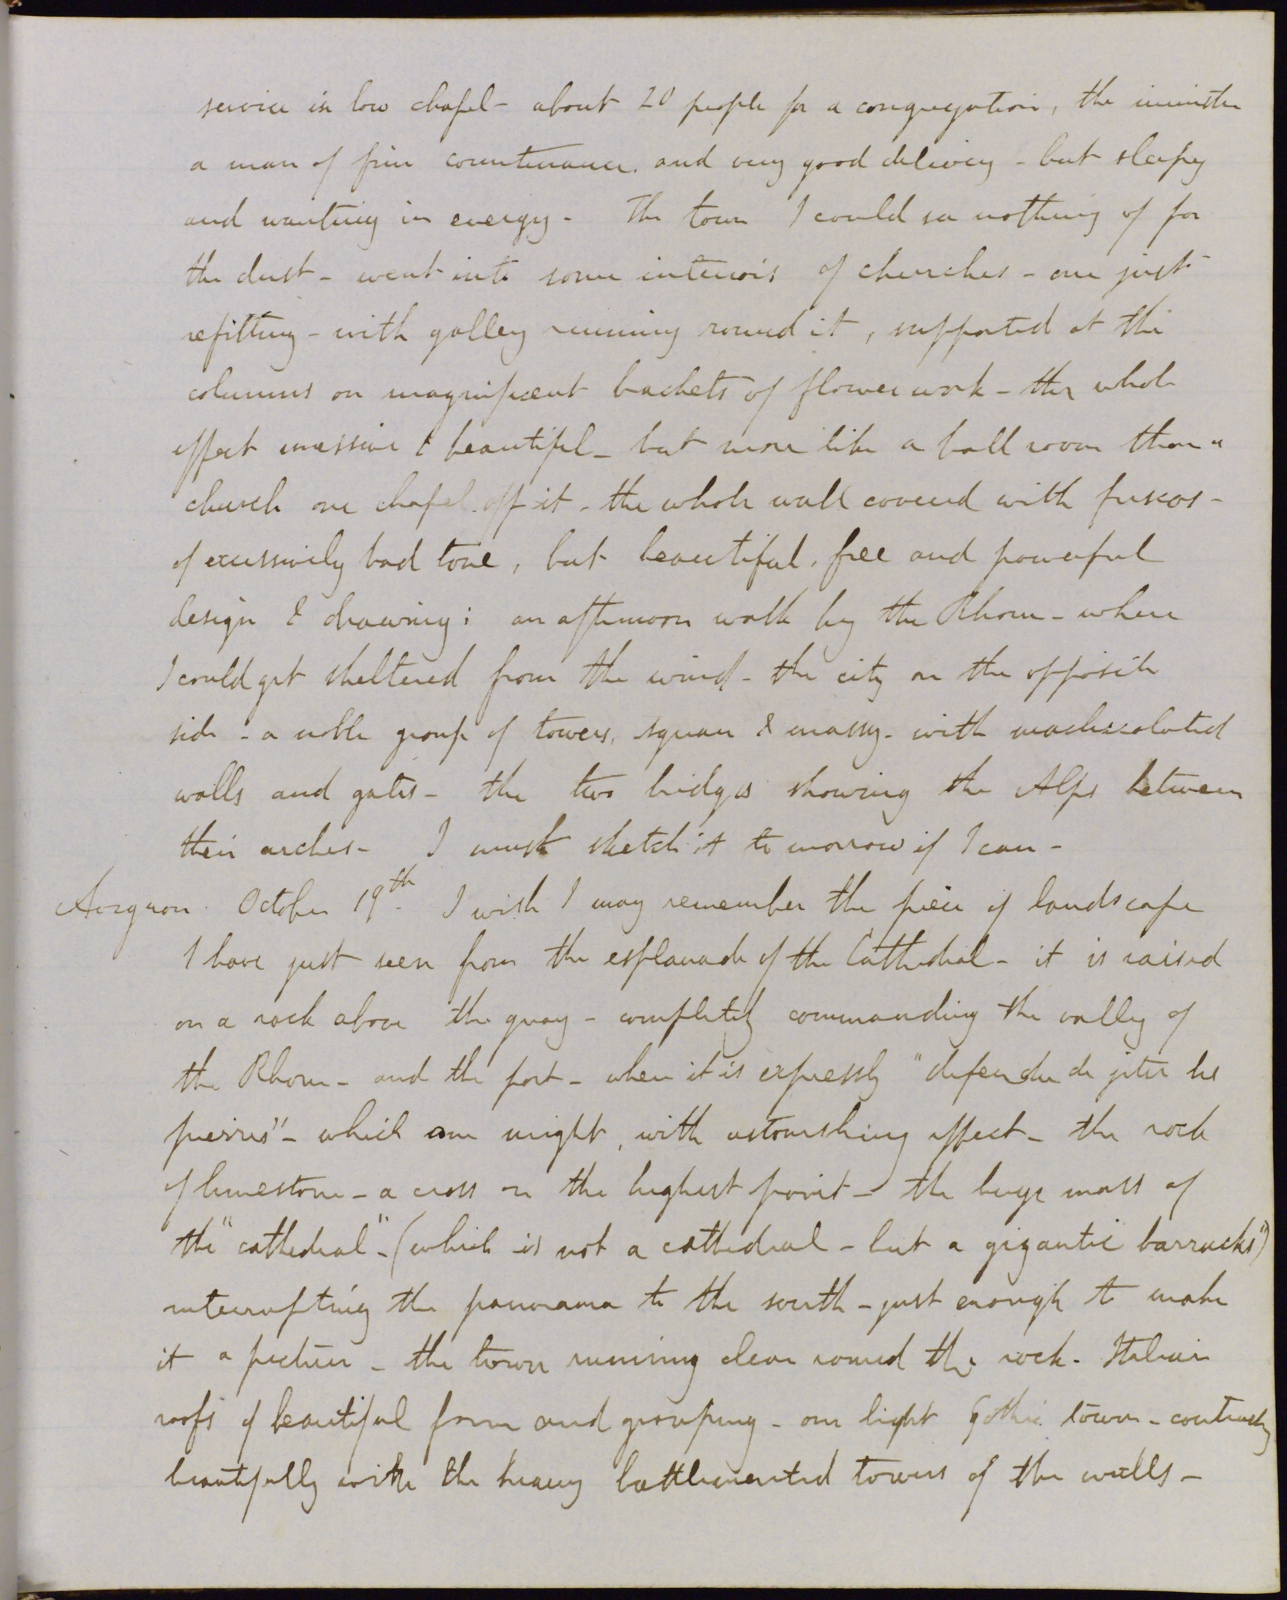 service in low chapel - about 20 people for a congregation, the minister
a man of fine countenance. and very good delivery - but sleepy
and wanting in energy - The town I could see nothing of for
the dust - went into some interiors of churches - one just
refitting - with gallery running round it, supported at the
columns on magnificent brackets of flower work - the whole
effect massive & beautiful - but more like a ball room than a
church one chapel off it - the whole wall covered with frescos -
of excessively bad tone, but beautiful, free and powerful
design & drawing: an afternoon walk by the Rhone - where
I could get sheltered from the wind - the city on the opposite
side - a noble group of towers, square & massy - with machiscolated
walls and gates - the two bridges showing the Alps between
their arches - I must sketch it to morrow if I can -
Avignon. October 19th. I wish I may remember the piece of landscape
I have just seen from the esplanade of the Cathedral - it is raised
on a rock above the quay - completely commanding the valley of
the Rhone - and the port - where it is expressly "defendu de jeter les
pierres" - which one might, with astonishing effect - the rock
of limestone - a cross on the highest point - the huge mass of
the "cathedral" - (which is not a cathedral - but a gigantic barracks")
interrupting the panorama to the south - just enough to make
it a picture - the town running clear round the rock - Italian
roofs of beautiful form and grouping - one light Gothic tower - contrasting
beautifully with the heavy battlemented towers of the walls -